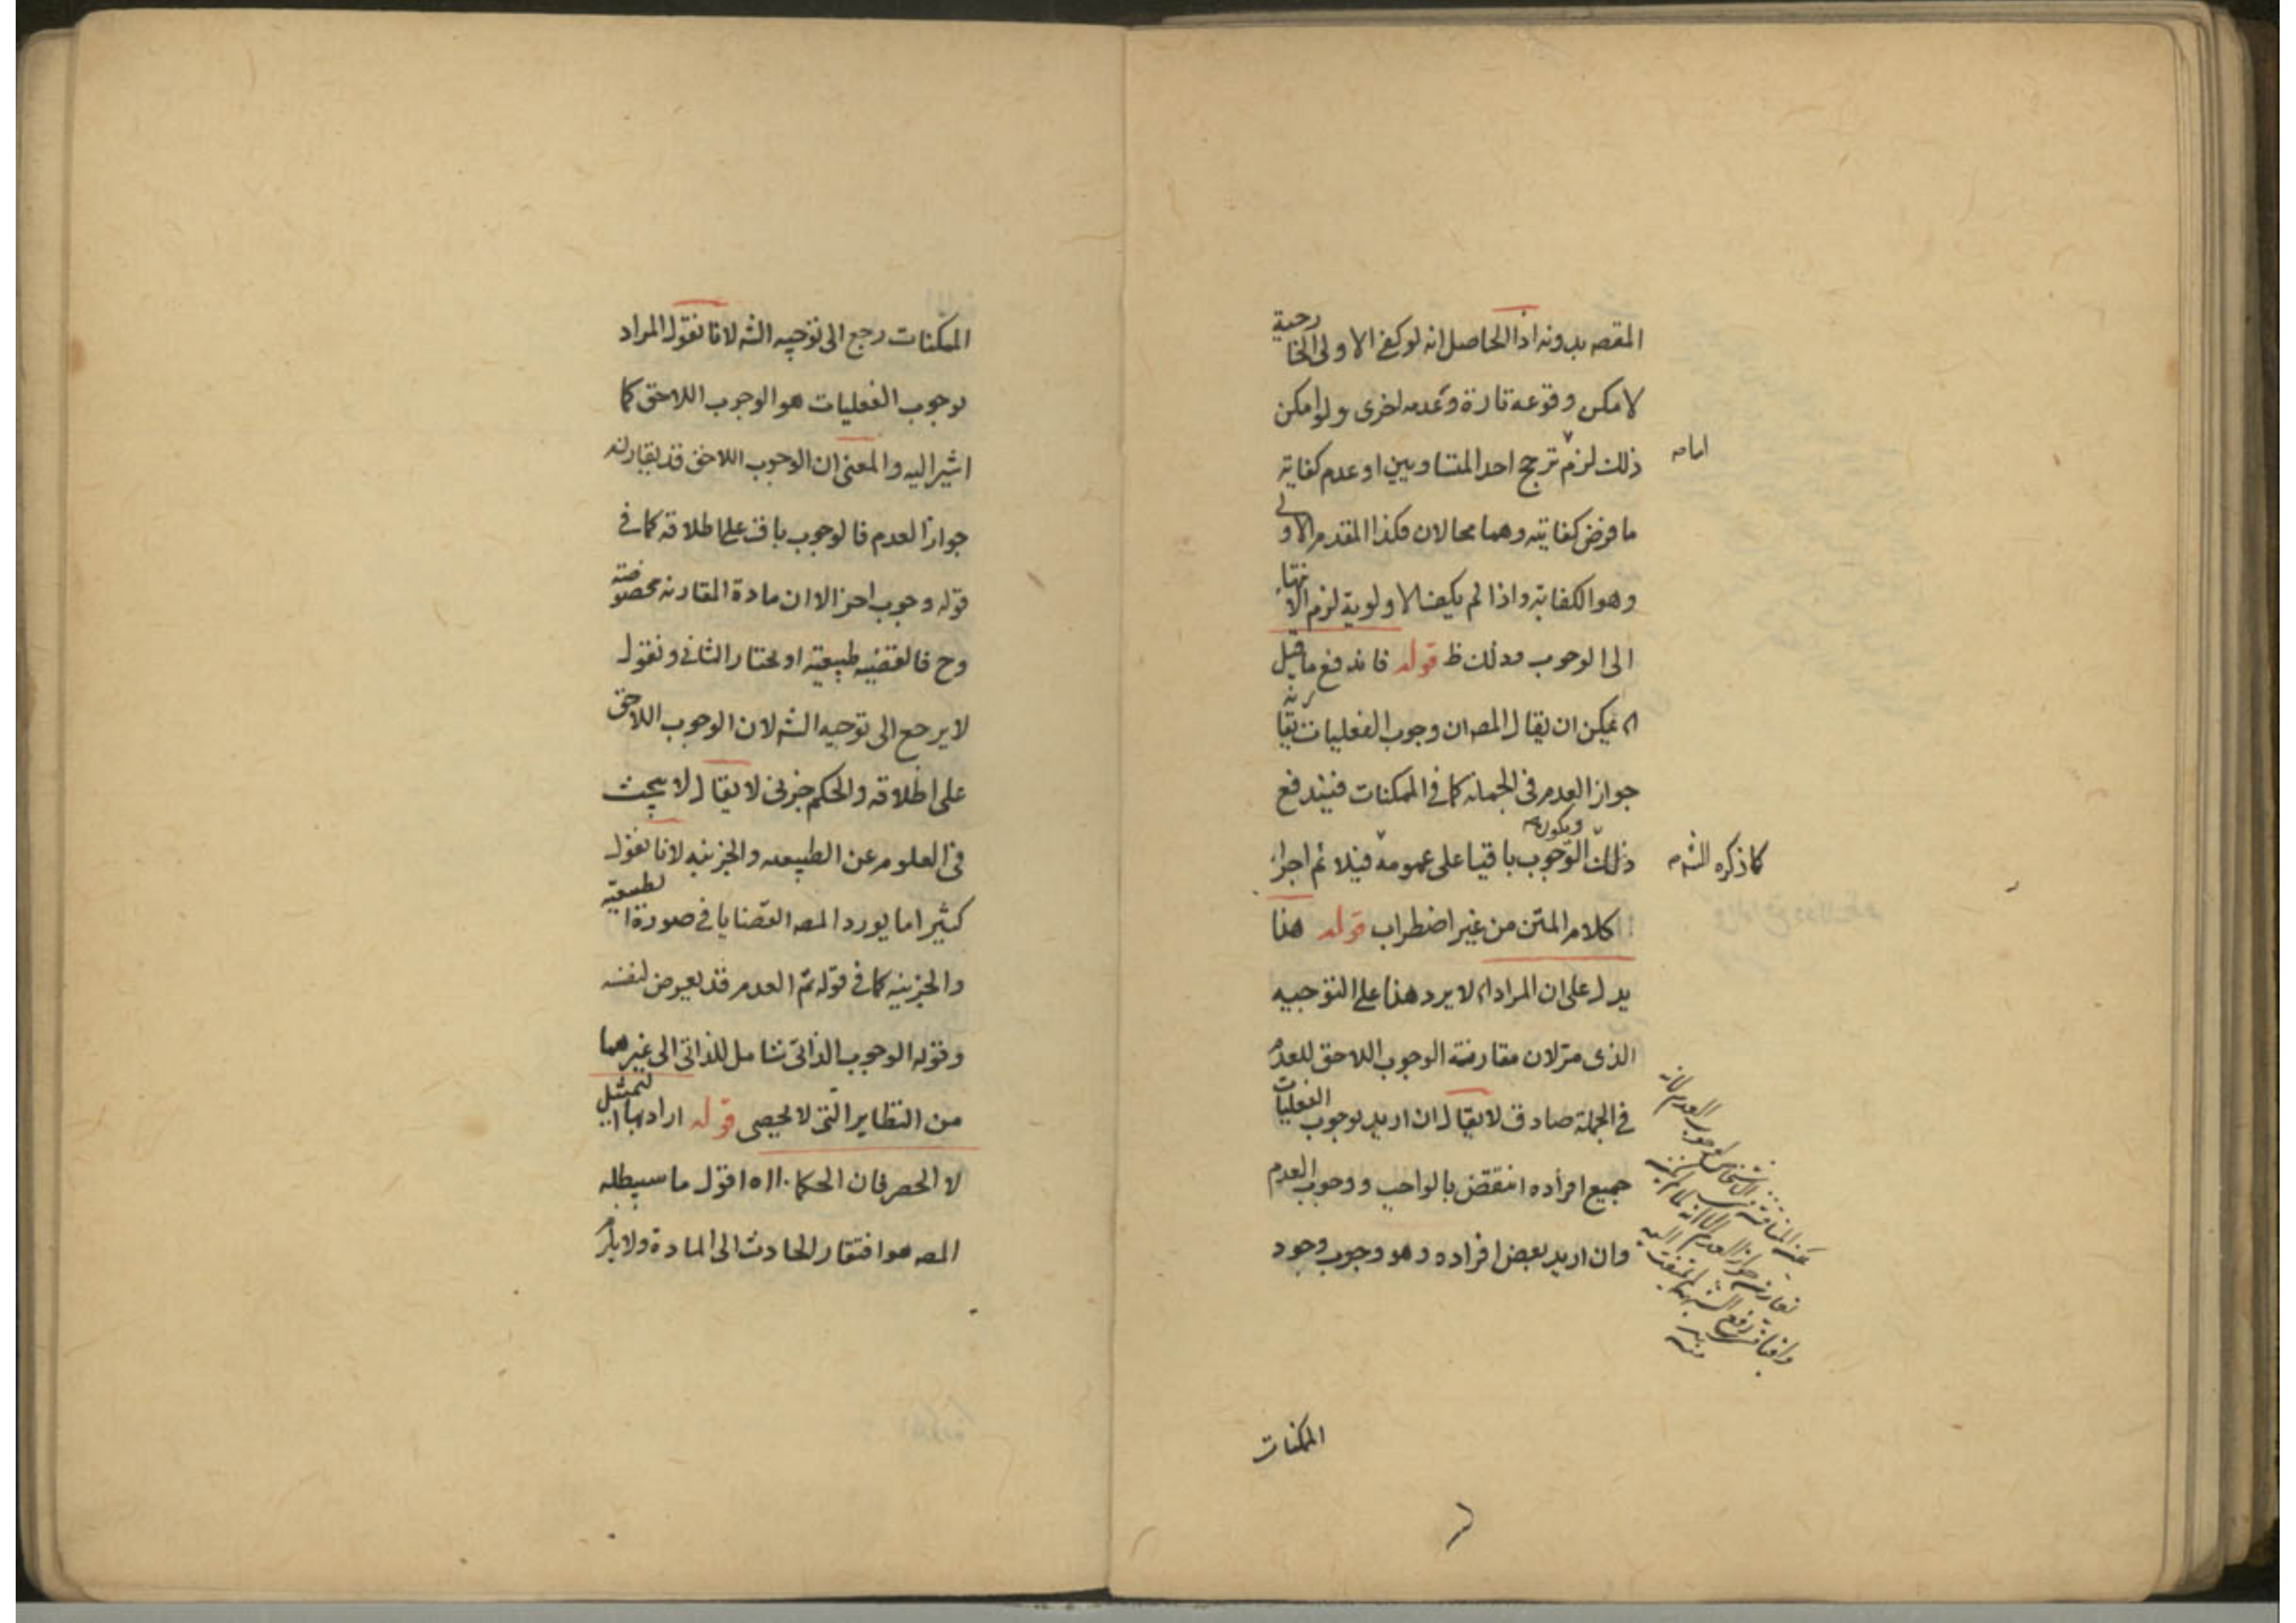 المقصه بدونه اذ الحاصل انه لو كفى الاولى الخارجية
لامكن وقوعه تارة وعدمه اخرى ولو امكن
ذلك لزم ترجح احد المتساويين او عدم كفاية
امامه
ما فرض كفايته وهما محالان فكذا المقدم الاولى
وهو الكفاية واذا لم يكف الاولوية لزم الانتهاء
الى الوجوب وذلك ظ قوله فاندفع ما قيل
انه يمكن ان يقال المصه ان وجوب الفعليات يقارنه
جواز العدم فى الجملة كما فى الممكنات فيندفع
ذلك ويكون الوجوب باقيا على عمومه فيلائم اجزاء
كما ذكره الشه
كلام المتن من غير اضطراب قوله هذا
يدل على ان المراد اه لا يرد هذا على التوجيه
الذى مر لان مقارنة الوجوب اللاحق للعدم
فى الجملة صادق لا يقال ان اريد بوجوب الفعليات
جميع افراده انتقض بالواجب ووجوب العدم
وان اريد بعض افراده وهو وجوب وجود
الممكنات
الممكنات رجع الى توجيه الشه لانا نقول المراد
بوجوب الفعليات هو الوجوب اللاحق كما
اشير اليه والمعنى ان الوجوب اللاحق قد يقارنه
جواز العدم فالوجوب باق على اطلاقه كما فى
قوله وجوب اخر الا ان مادة المقارنه مخصوصة
وح فالقضيه طبيعية او نختار الثانى ونقول
لا يرجع الى توجيه الشه لان الوجوب اللاحق
على اطلاقه والحكم جزئى لا يقال لا يبحث
فى العلوم عن الطبيعه والجزئيه لانا نقول
كثيرا ما يورد المصه القضايا فى صورة الطبيعية
والجزئيه كما فى قوله ثم العدم قد يعرض لنفسه
وقوله الوجوب الذاتى شامل للذاتى الى غيرهما
من النظاير التى لا تحصى قوله اراد بها التمثيل
لا الحصر فان الحكماء اه اقول ما سيبطله
المصه هو افتقار الحادث الى المادة ولا يلزم